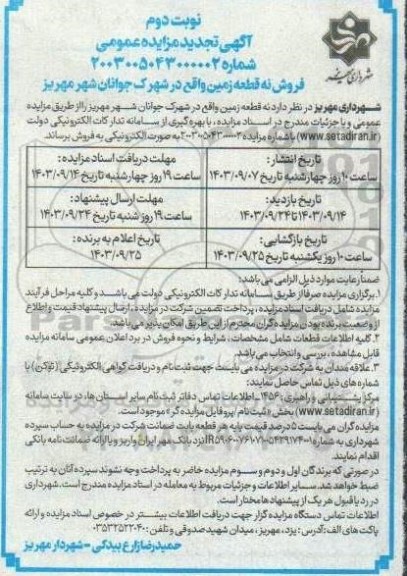 نوبت دوم
آگهی تجدید مزایده عمومی
شماره ۲۰۰۳۰۰۵۰۴۳۰۰۰۰۰۲
فروش نه قطعه زمین واقع در شهرک جوانان شهر مهریز
شهرداری مهریز
شهرداری مهریز در نظر دارد نه قطعه زمین واقع در شهرک جوانان شهر مهریز را از طریق مزایده
عمومی و با جزئیات مندرج در اسناد مزایده، با بهره گیری از سامانه تدارکات الکترونیکی دولت
(www.setadiran.ir) با شماره مزایده ۲۰۰۳۰۰۵۰۴۳۰۰۰۰۰۲ به صورت الکترونیکی به فروش برساند.
تاریخ انتشار:
ساعت ۱۰ روز چهارشنبه تاریخ ۱۴۰۳/۰۹/۰۷
مهلت دریافت اسناد مزایده:
ساعت ۱۹ روز چهارشنبه تاریخ ۱۴۰۳/۰۹/۱۴
تاریخ بازدید:
۱۴۰۳/۰۹/۱۴ تا ۱۴۰۳/۰۹/۲۴
مهلت ارسال پیشنهاد:
ساعت ۱۹ روز شنبه تاریخ ۱۴۰۳/۰۹/۲۴
تاریخ بازگشایی:
ساعت ۱۰ روز یکشنبه تاریخ ۱۴۰۳/۰۹/۲۵
تاریخ اعلام به برنده:
۱۴۰۳/۰۹/۲۵
ضمنا رعایت موارد ذیل الزامی می باشد:
۱. برگزاری مزایده صرفا از طریق سامانه تدارکات الکترونیکی دولت می باشد و کلیه مراحل فرآیند
مزایده شامل دریافت اسناد مزایده، پرداخت تضمین شرکت در مزایده، ارسال پیشنهاد قیمت و اطلاع
از وضعیت برنده بودن مزایده گران محترم از این طریق امکان پذیر می باشد.
۲. کلیه اطلاعات قطعات شامل مشخصات، شرایط و نحوه فروش در برد اعلان عمومی سامانه مزایده
قابل مشاهده، بررسی و انتخاب می باشد.
۳. علاقه مندان به شرکت در مزایده می بایست جهت ثبت نام و دریافت گواهی الکترونیکی (توکن) با
شماره های ذیل تماس حاصل نمایند:
مرکز پشتیبانی و راهبری: ۱۴۵۶، اطلاعات تماس دفاتر ثبت نام سایر استان ها، در سایت سامانه
(www.setadiran.ir) بخش «ثبت نام/پروفایل مزایده گر» موجود است.
مزایده گران می بایست ۵ درصد قیمت پایه هر قطعه بابت ضمانت شرکت در مزایده به حساب سپرده
شهرداری به شماره نزد بانک مهر ایران واریز و یا ارائه ضمانت نامه بانکی
اقدام نمایند
در صورتی که برندگان اول و دوم و سوم مزایده حاضر به پرداخت وجه نشوند سپرده آنان به ترتیب
ضبط خواهد شد. سایر اطلاعات و جزئیات مربوط به معامله در اسناد مزایده مندرج است. شهرداری
در رد یا قبول هر یک از پیشنهاد ها مختار است.
اطلاعات تماس دستگاه مزایده گزار جهت دریافت اطلاعات بیشتر در خصوص اسناد مزایده و ارائه
پاکت های الف: آدرس: یزد، مهریز، میدان شهید صدوقی و تلفن: ۰۳۵۳۲۵۲۲۰۴۰
حمیدرضا زارع بیدکی - شهردار مهریز